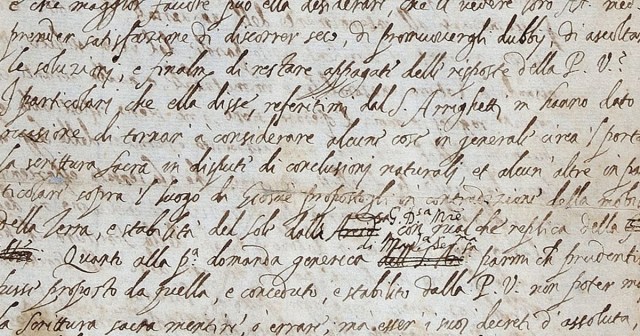 e che maggior favore può ella desiderare, che il vedere loro Alt. med
prender satisfazione di discorrer seco, di promuovergli dubbj, di ascoltar
le soluzioni, e finalm. di restare appagati delle risposte della P. V.a
i particolari che ella disse, referitimi dal S. Arrighetti, m'hanno dato
casione di tornar' a considerare alcune cose in generale circa 'l porta
la scrittura sacra in dispute di conclusioni naturali, et alcun' altre in pa
ticolari sopra 'l luogo di Giosuè propostogli in contradizione della mobil
D.sa Mre
della Terra, e stabilità del Sole dalla con qualche replica della
di Ser.sa
Quanto alla p.a domanda generica parmi ch' prudentiss
proposto da quella, e conceduto, e stabilito dalla P. V. non poter mai
la scrittura sacra mentire, o errare, ma esser' i suoi decreti d'assoluta